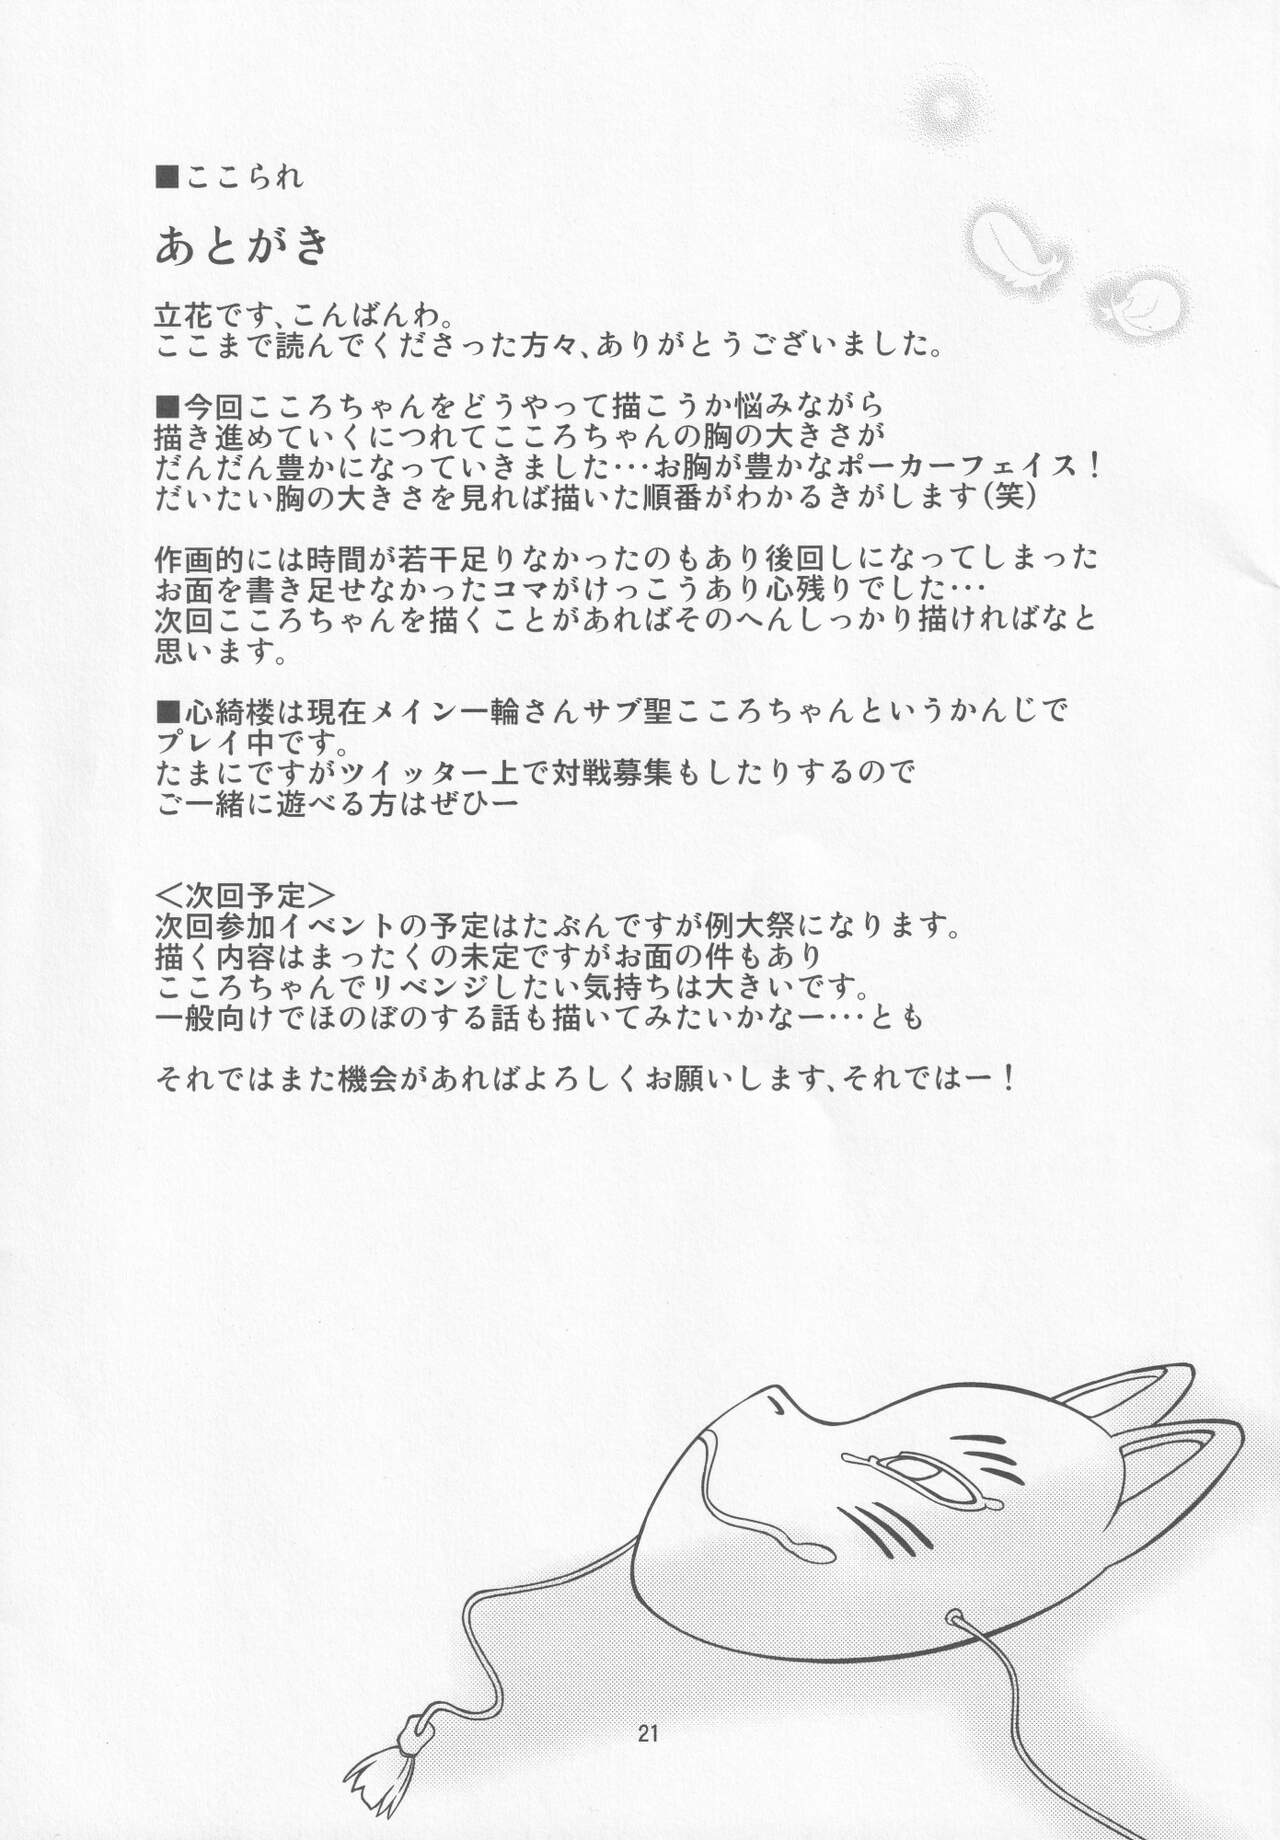 ■ここられ
あとがき
立花です、こんばんわ。
ここまで読んでくださった方々、ありがとうございました。
■今回こころちゃんをどうやって描こうか悩みながら
描き進めていくにつれてこころちゃんの胸の大きさが
だんだん豊かになっていきました…お胸が豊かなポーカーフェイス！
だいたい胸の大きさを見れば描いた順番がわかるきがします(笑)
作画的には時間が若干足りなかったのもあり後回しになってしまった
お面を書き足せなかったコマがけっこうあり心残りでした…
次回こころちゃんを描くことがあればそのへんしっかり描ければなと
思います。
■心綺楼は現在メイン一輪さんサブ聖こころちゃんというかんじで
プレイ中です。
たまにですがツイッター上で対戦募集もしたりするので
ご一緒に遊べる方はぜひー
＜次回予定＞
次回参加イベントの予定はたぶんですが例大祭になります。
描く内容はまったくの未定ですがお面の件もあり
こころちゃんでリベンジしたい気持ちは大きいです。
一般向けでほのぼのする話も描いてみたいかなー…とも
それではまた機会があればよろしくお願いします、それではー！
21